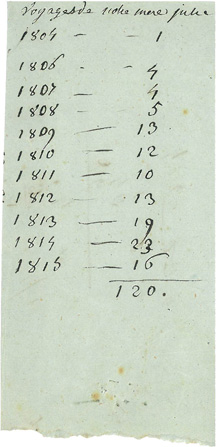 Voyages de notre mere julie
1804 - - 1
1806 - - 4
1807 - 4
1808 - 5
1809 — 13
1810 — 12
1811 — 10
1812 - 13
1813 — 19
1814 — 23
1815 — 16
120.